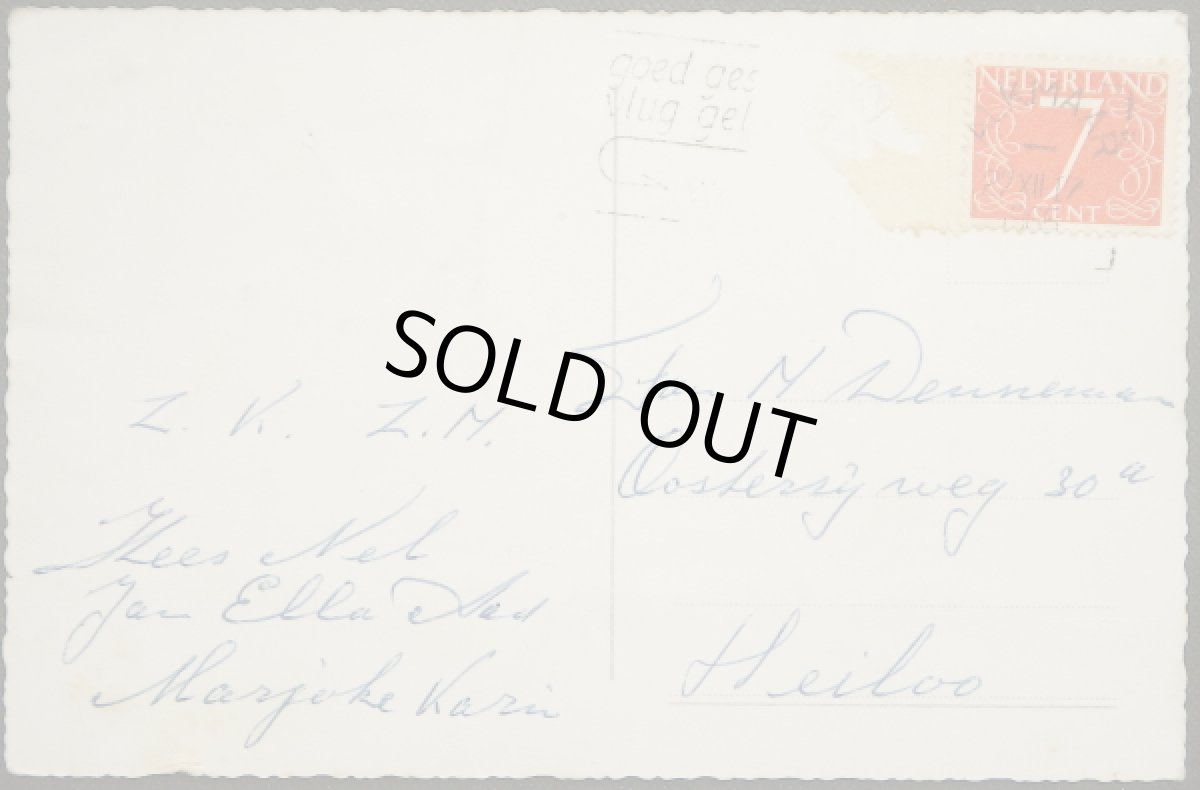 goed ges
vlug gel
NEDERLAND
7
CENT
SOLD OUT
Z. K. Z. M.
Kees Nel
Jan Ella Aad
Marjoke Karin
M Denneman
Oosterzijweg 30 a
Heiloo